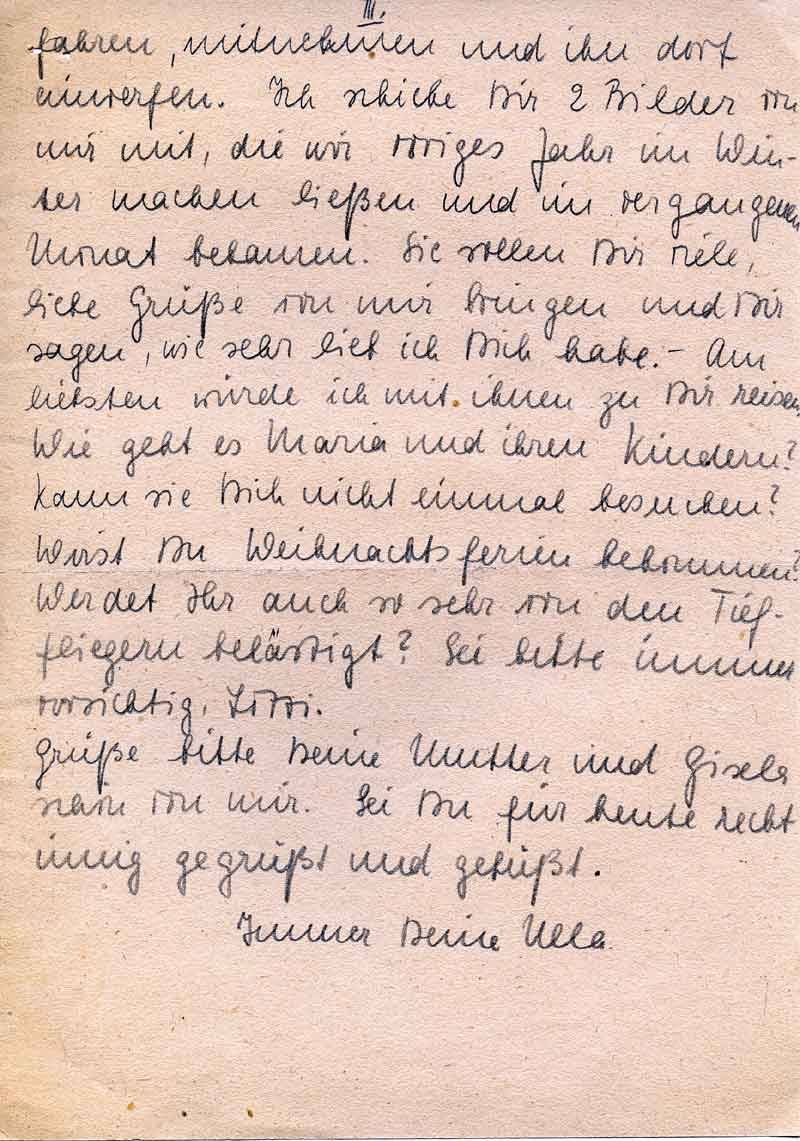 III.
fahren, mitnehmen und ihn dort
einwerfen. Ich schicke Dir 2 Bilder von
mir mit, die wir voriges Jahr im Win-
ter machen ließen und im vergangenen
Monat bekamen. Sie sollen Dir viele,
liebe Grüße von mir bringen und Dir
sagen, wie sehr lieb ich Dich habe. - Am
liebsten würde ich mit ihnen zu Dir reisen.
Wie geht es Maria und ihren Kindern?
Kann sie Dich nicht einmal besuchen?
Wirst Du Weihnachtsferien bekommen?
Werdet Ihr auch so sehr von den Tief-
fliegern belästigt? Sei bitte immer
vorsichtig,
Grüße bitte Deine Mutter und Gisela
schön von mir. Sei Du für heute recht
innig gegrüßt und geküßt.
Immer Deine Ulla